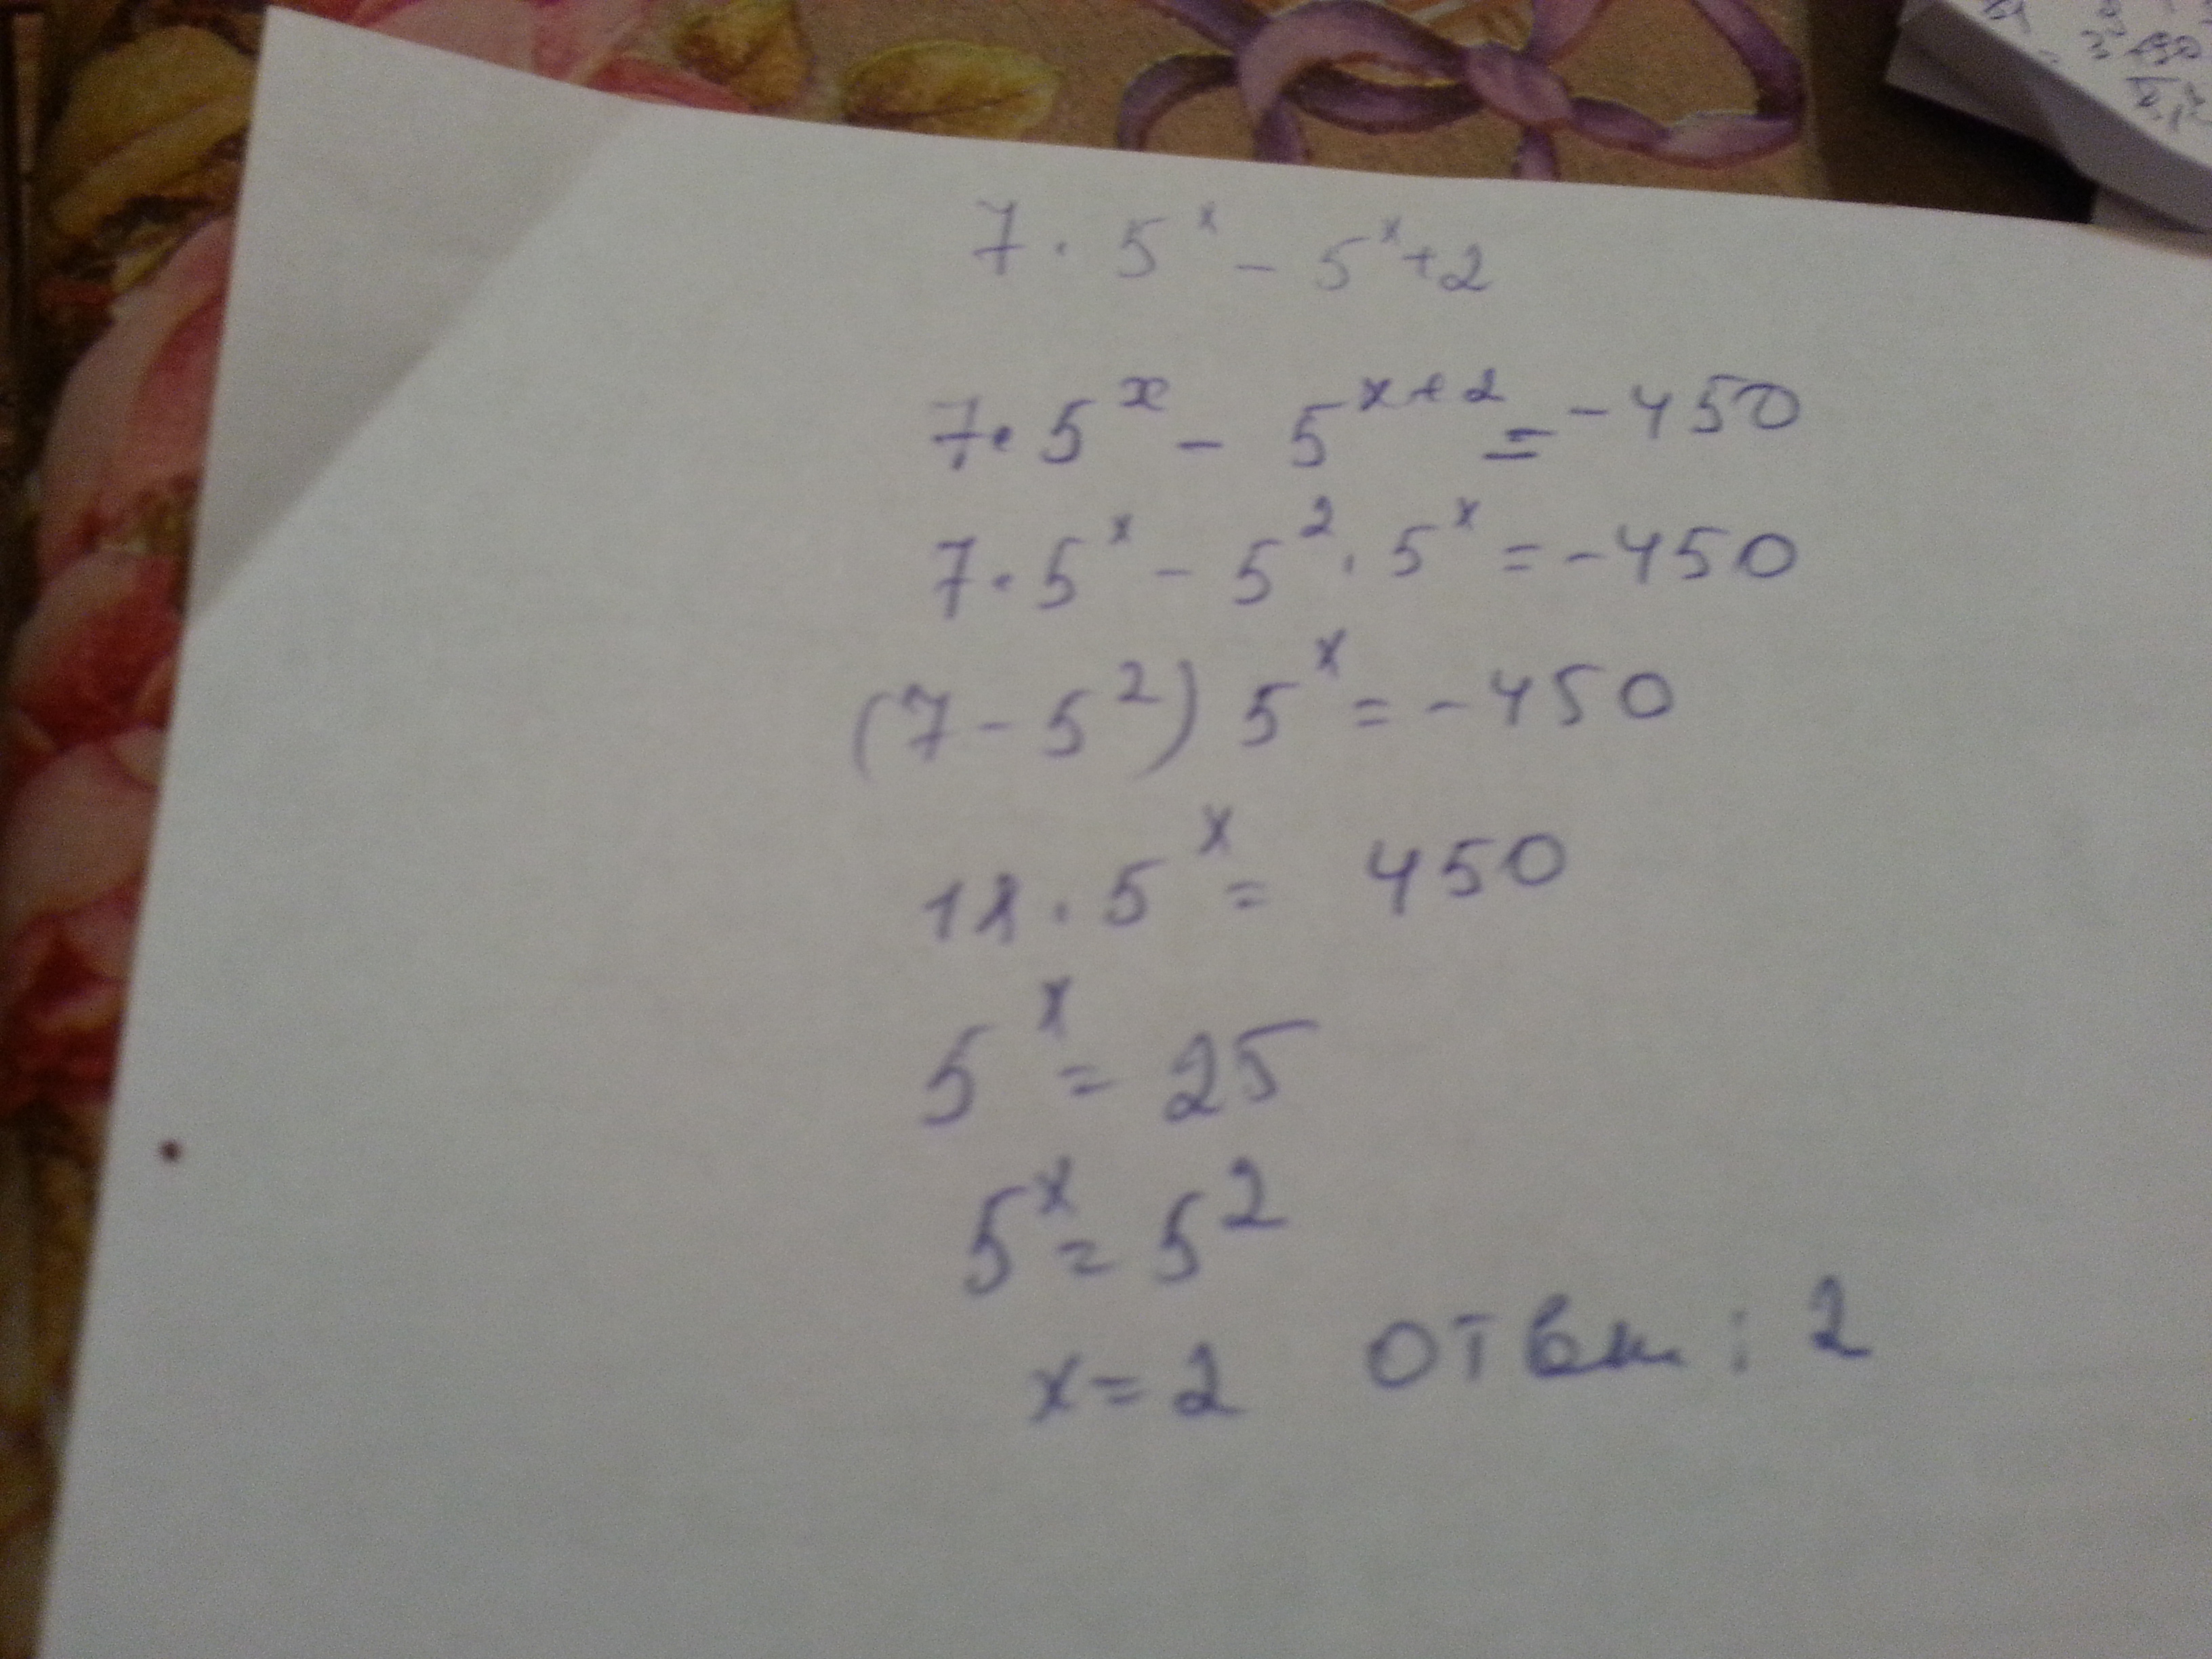 7 · 5^x - 5^x + 2
7 · 5^x - 5^{x+2} = -450
7 · 5^x - 5^2 · 5^x = -450
(7 - 5^2) 5^x = -450
18 · 5^x = 450
5^x = 25
5^x = 5^2
x = 2 ответ: 2